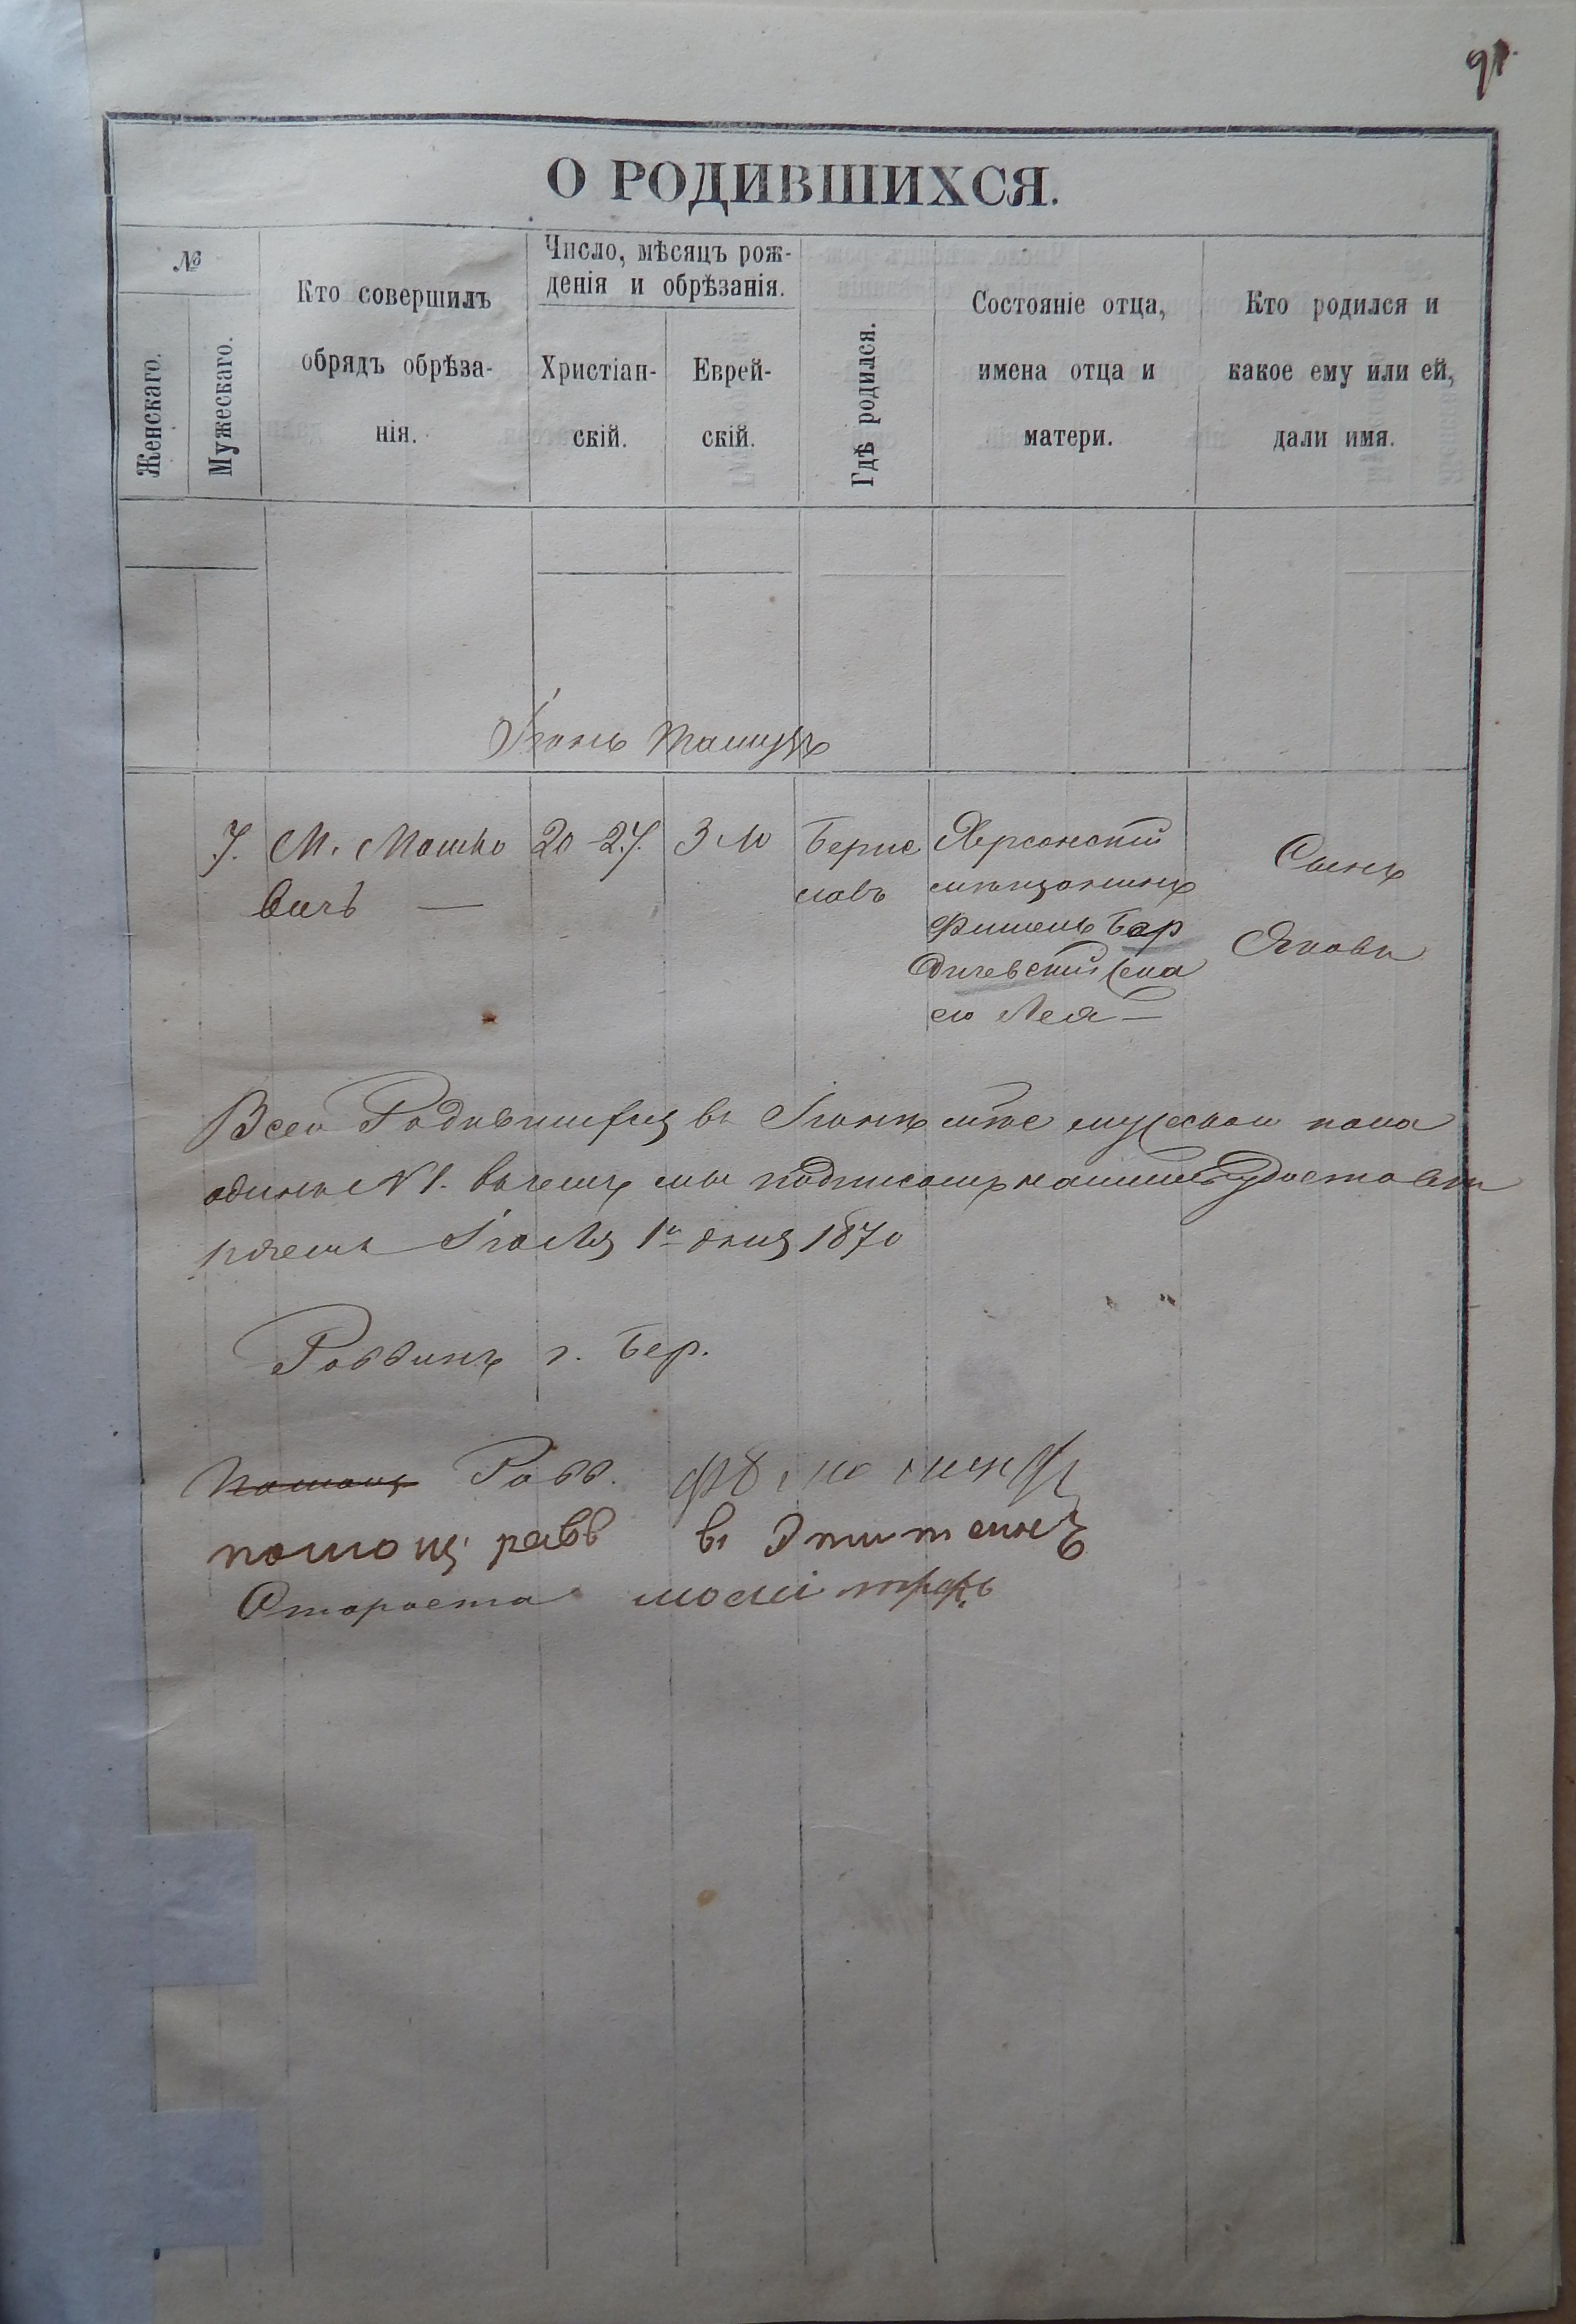 О РОДИВШИХСЯ.
№
Женскаго.
Мужескаго.
Кто совершилъ
обрядъ обрѣза-
нія.
Число, мѣсяцъ рож-
денія и обрѣзанія.
Христіан-
скій.
Еврей-
скій.
Гдѣ родился.
Состояніе отца,
имена отца и
матери.
Кто родился и
какое ему или ей,
дали имя.
Іюнь Тамузъ
7.
М. Машко
вичъ —
20-27.
3 10
Берис
лавъ
Херсонскій
мѣщанинъ
Фишель Бер
дичевскій жена
его Лея —
Сынъ
Яковъ
Всего Родившихся въ Іюнѣ м-цѣ мужскаго пола
одинъ № 1. въ чемъ мы подписомъ нашимъ удостовѣ
ряемъ Іюля 1го дня 1870
Раввинъ г. Бер.
Помощ Равв.
помощ равв В
Староста